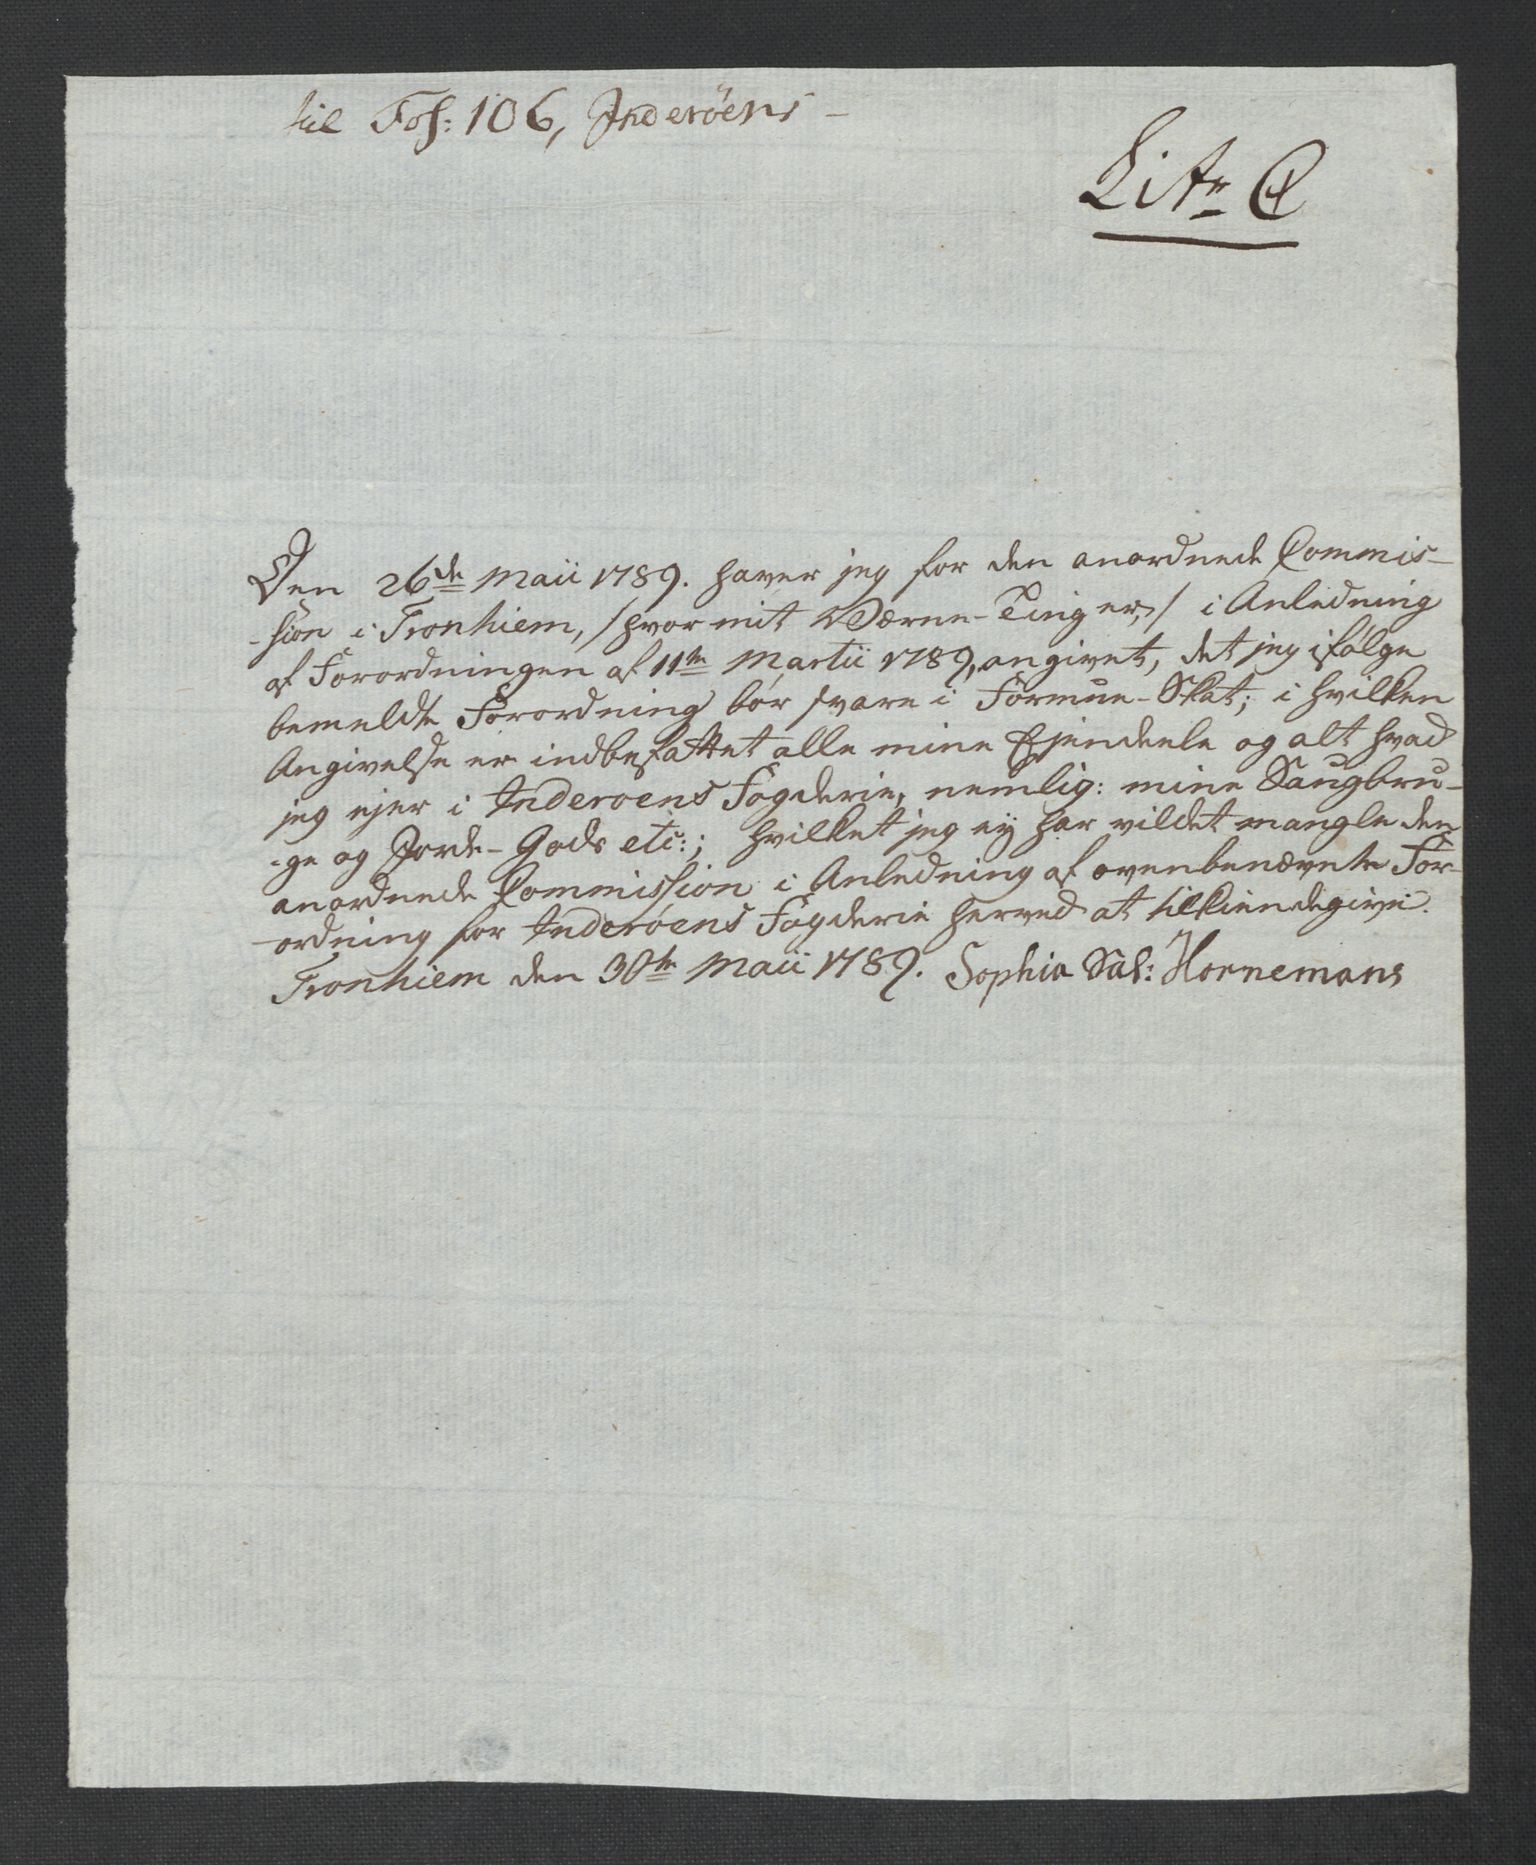 til Fol: 106, Inderöens –
Litr C
Den 26de Maii 1789. haver jeg for den anordnede Commis-
-sion i Tronhiem, /hvor mit Værne-Ting er,/ i Anledning
af Forordningen af 11te Martii 1789, angivet, det jeg ifølge
bemeldte Forordning bör svare i Formue-Skat; i hvilken
Angivelse er indbefattet alle mine Ejendeele og alt hvad
jeg ejer i Inderoens Fogderie, nemlig: mine Saugbru-
-ge og Jorde-Gods etc:; hvilket jeg ej har vildet mangle den
anordnede Commission i Anledning af ovenbenævnte For-
-ordning for Inderöens Fogderie herved at tilkiendegive.
Tronhiem den 30te Maii 1789. Sophia Sal: Hornemans